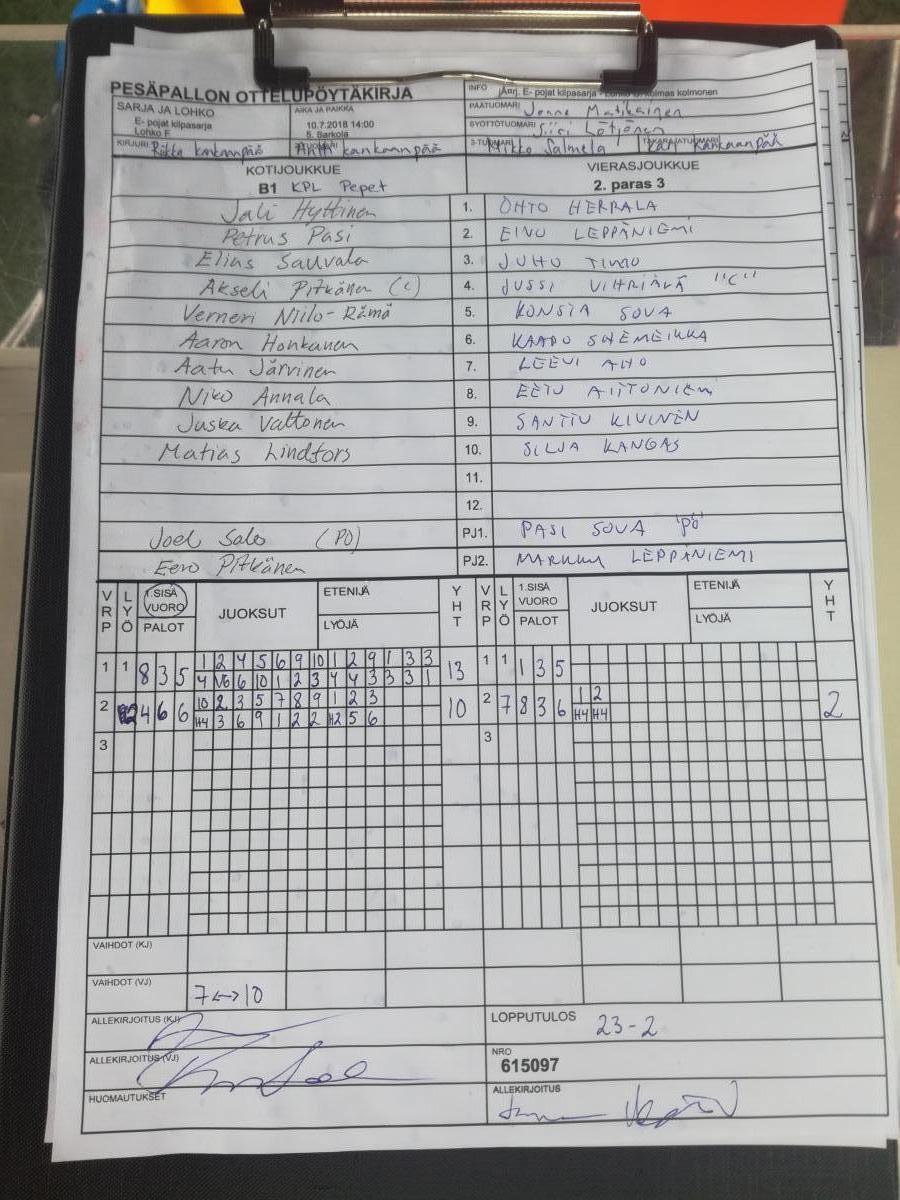 PESÄPALLON OTTELUPÖYTÄKIRJA
INFO Lohko G. kolmas kolmonen
SARJA JA LOHKO
E- pojat kilpasarja
Lohko F
AIKA JA PAIKKA
10.7.2018 14:00
5. Sarkola
PÄÄTUOMARI Jonne Matikainen
SYÖTTÖTUOMARI Siiri
KIRJURI Riikka Kankaanpää
Kankaanpää
3-TUOMARI Mikko Salmela
TAKARAJATUOMARI Kankaanpää
KOTIJOUKKUE
B1 KPL Pepet
VIERASJOUKKUE
2. paras 3
Jali Hyttinen 1. OHTO HERRALA
Petrus Pasi 2. EINO LEPPÄNIEMI
Elias Sauvala 3. JUHO TIMO
Akseli Pitkänen (c) 4. JUSSI VIHRIÄLÄ "C"
Verneri Niilo-Rämä 5. KONSTA SOVA
Aaron Honkanen 6. KAAPO SHEMEIKKA
Aatu Järvinen 7. LEEVI AHO
Niko Annala 8. EETU
Juska Valtonen 9. SANTTU KIVINEN
Matias Lindfors 10. SILJA KANGAS
11.
12.
Joel Salo (PO) PJ1. PASI SOVA "PÖ"
Eero Pitkänen PJ2. MARKKU LEPPÄNIEMI
VRP LYÖ 1.SISÄ VUORO PALOT JUOKSUT ETENIJÄ LYÖJÄ YHT VRP LYÖ 1.SISÄ VUORO PALOT JUOKSUT ETENIJÄ LYÖJÄ YHT
1 1 8 3 5 1 2 4 5 6 9 10 1 2 9 1 3 3 13 1 1 1 3 5
4 V6 6 10 1 2 3 4 4 3 3 3 1
2 4 6 6 10 2 3 5 7 8 9 1 2 3 10 2 7 8 3 6 1 2 2
H4 3 6 9 1 2 2 H2 5 6 H4 H4
3 3
VAIHDOT (KJ)
VAIHDOT (VJ) 7<->10
ALLEKIRJOITUS (KJ)
LOPPUTULOS 23-2
ALLEKIRJOITUS (VJ)
NRO
615097
HUOMAUTUKSET
ALLEKIRJOITUS